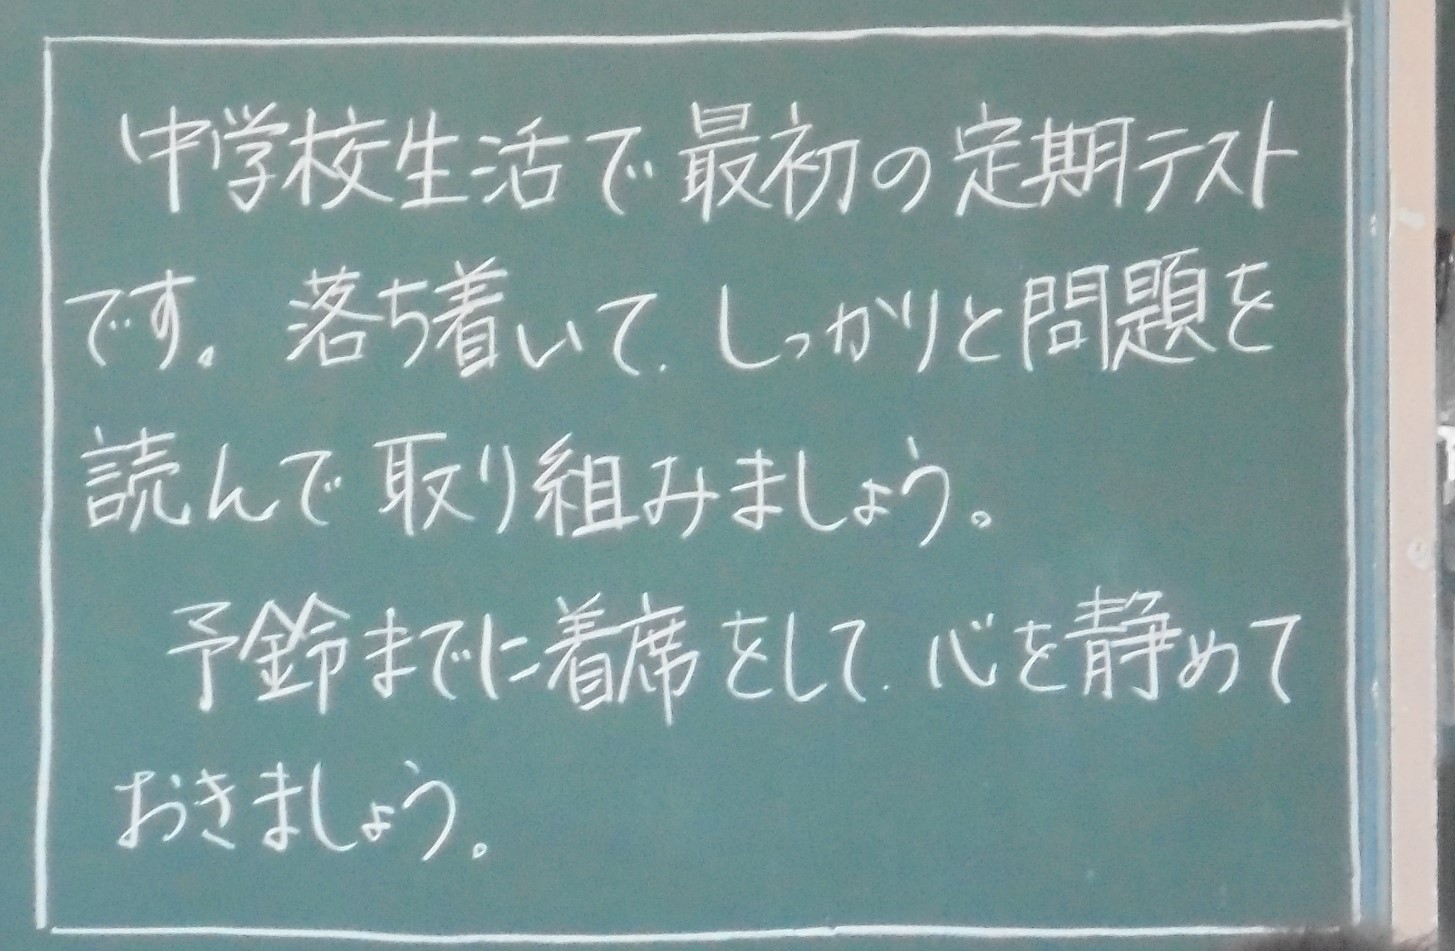 中学校生活で最初の定期テスト
です。落ち着いて、しっかりと問題を
読んで取り組みましょう。
予鈴までに着席をして、心を静めて
おきましょう。